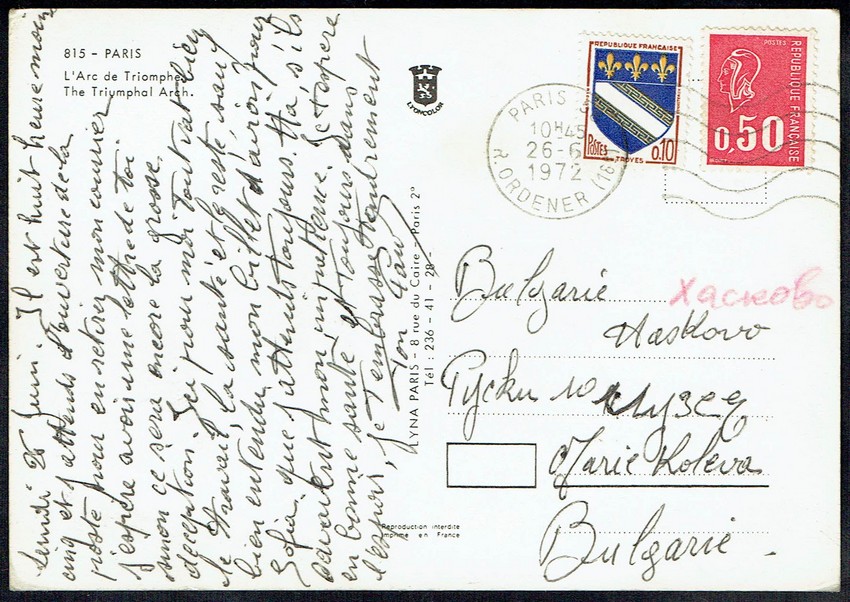 815 – PARIS
L'Arc de Triomphe
The Triumphal Arch.
LYONCOLOR
Lundi 26 Juin. Il est huit heure moins
cinq et j'attends l'ouverture de la
poste pour en retirer mon courrier
j'espère avoir une lettre de toi
sinon ce sera encore la grosse
deception. Ici pour moi tout va bien
le travail, la santé et le reste, sauf
bien entendu mon billet d'avion pour
Sofia, que j'attends toujours. Ha s'ils
savaient mon inquiétude. Je t'espère
en bonne santé et toujours dans
l'espoir, je t'embrasse tendrement
Ton
LYNA PARIS – 8 rue du Caire – Paris 2°
Tél : 236 – 41 – 28 –
Reproduction interdite
Imprimé en France
PARIS
10H45
26-6
1972
R. ORDENER (18)
REPUBLIQUE FRANÇAISE
POSTES
TROYES
0,10
POSTES
REPUBLIQUE FRANÇAISE
0,50
Bulgarie
Хасково
Haskovo
Руски 10
Музей
Marie Koleva
Bulgarie.